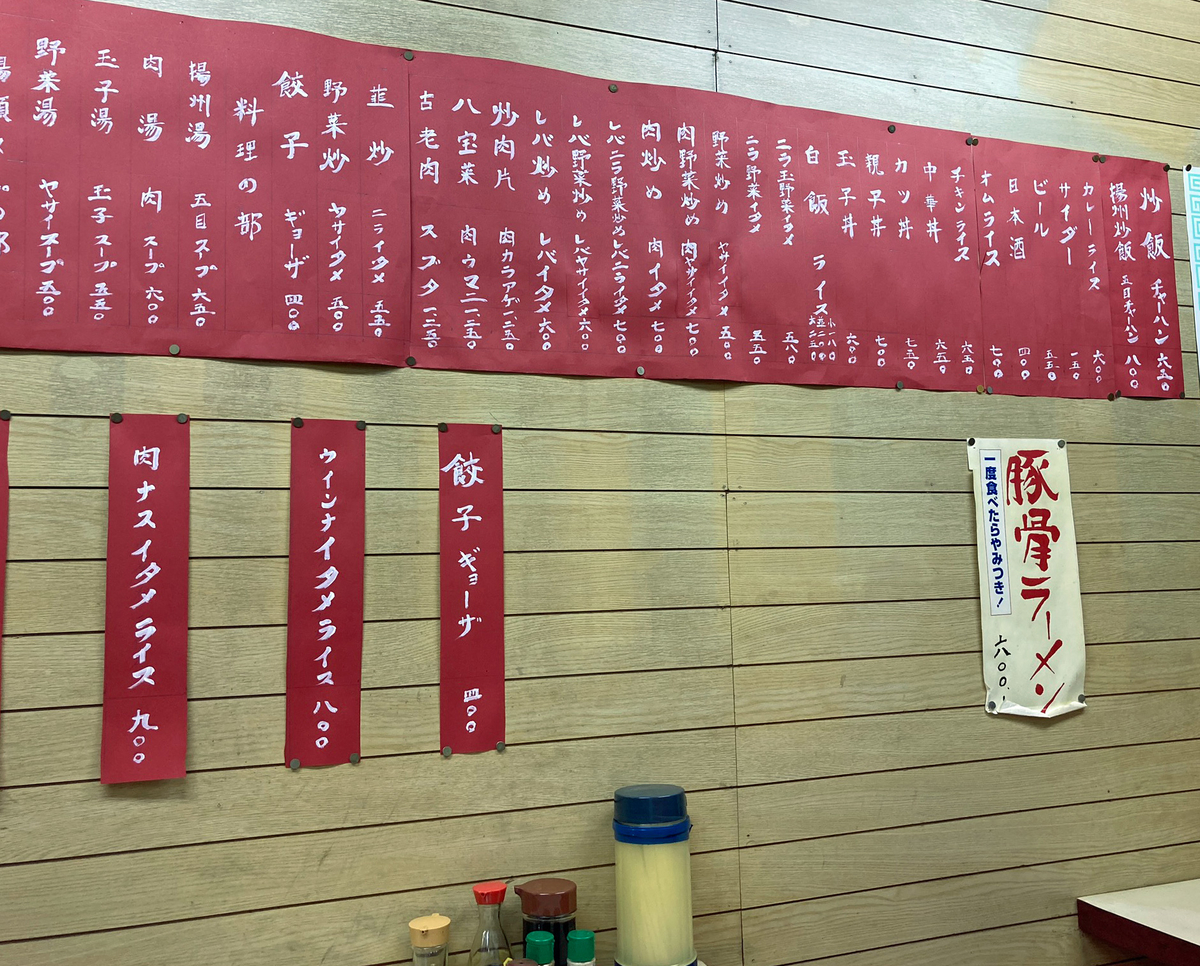 炒飯 チャーハン 六五〇
揚州炒飯 五目チャーハン 八〇〇
カレーライス 六〇〇
サイダー 一五〇
ビール 五五〇
日本酒 四〇〇
オムライス 七〇〇
チキンライス 六五〇
中華丼 六五〇
カツ丼 七五〇
親子丼 七〇〇
玉子丼 六〇〇
白飯 ライス
ニラ玉野菜イタメ 五八〇
ニラ野菜イタメ 五五〇
野菜炒め ヤサイイタメ 五〇〇
肉野菜炒め 肉ヤサイイタメ 七〇〇
肉炒め 肉イタメ 七〇〇
レバニラ野菜炒め レバニライタメ 七〇〇
レバ野菜炒め レバヤサイイタメ 六〇〇
レバ炒め レバイタメ 六〇〇
炒肉片 肉カラアゲ 一、二五〇
八宝菜 肉ウマニ 一、二五〇
古老肉 スブタ 一、二五〇
韮炒 ニライタメ 五五〇
野菜炒 ヤサイタメ 五〇〇
餃子 ギョーザ 四〇〇
料理の部
揚州湯 五目スープ 六五〇
肉湯 肉スープ 六〇〇
玉子湯 玉子スープ 五五〇
野菜湯 ヤサイスープ 五〇〇
豚骨ラーメン
一度食べたらやみつき!
六〇〇
餃子 ギョーザ 四〇〇
ウインナイタメライス 八〇〇
肉ナスイタメライス 九〇〇